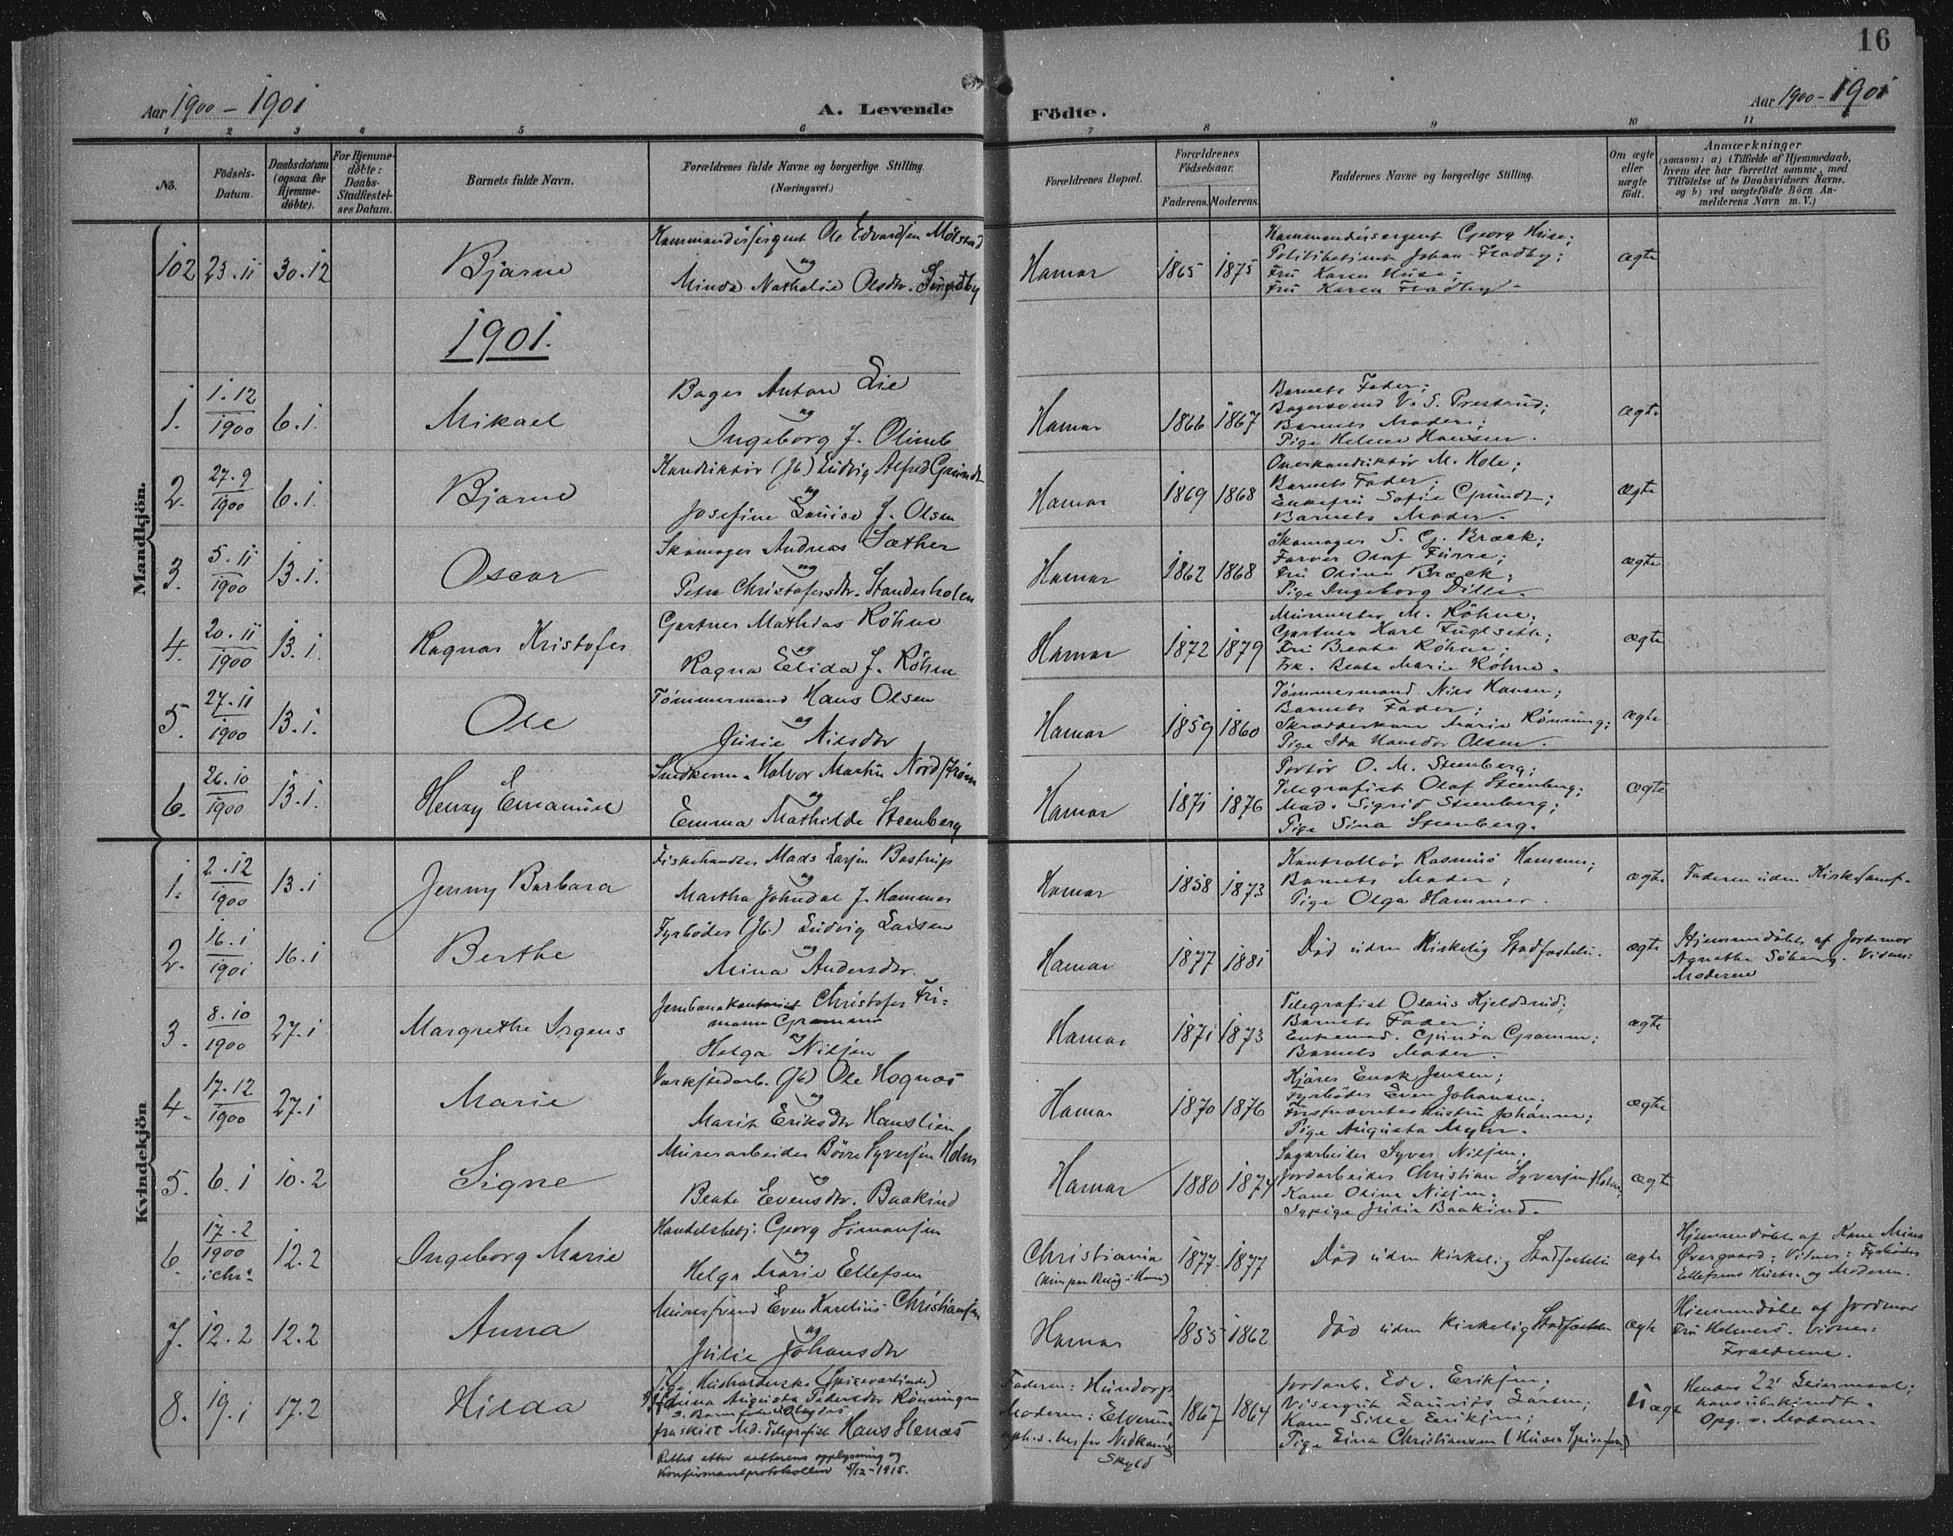 16
Aar 1900 - 1901
A. Levende
Födte.
Aar 1900 - 1901
1 2 3 4 5 6 7 8 9 10 11
No.
Födsels-
Datum.
Daabsdatum
(ogsaa for
Hjemme-
döbte).
For Hjemme-
döbte:
Daabs-
Stadfæstel-
ses Datum.
Barnets fulde Navn.
Forældrenes fulde Navne og borgerlige Stilling.
(Næringsvei.)
Forældrenes Bopæl.
Forældrenes
Födselsaar.
Faderens. Moderens.
Faddernes Navne og borgerlige Stilling.
Om ægte
eller
uægte
født.
Anmærkninger
(saasom: a) i Tilfælde af Hjemmedaab,
hvem der har forrettet samme, med
Tilföielse af to Daabsvidners Navne,
og b) ved uægtefödte Börn An-
melderens Navn m. V.)
Mandkjön.
102 23.11 30.12 Bjarne
Kommandersergent Ole Edvardsen Mølstad
og
Minda Nathalie Olsdtr.
Hamar 1865 1875
Kommandersergent Georg Huse;
Politibetjent Johan Fladby;
Fru Karen Huse;
Fru Karen Fladby.
ægte
1901.
1. 1.12
1900 6.1. Mikael
Bager Anton Lie
og
Ingeborg J. Olimb
Hamar 1866 1867
Barnets Fader;
Bagersvend V. S. Prestrud;
Barnets Moder;
Pige Helene Hansen.
ægte
2. 27.9
1900 6.1 Bjarne
Konduktör (Jb) Ludvig Alfred Grundt
og
Josefine Louise J. Olsen
Hamar 1869 1868
Overkonduktör M. Hole;
Barnets Fader;
Enkefru Sofie Grundt;
Barnets Moder.
ægte
3. 5.11
1900 13.1. Oscar
Skomager Andreas Sæther
og
Petra Christofersdtr. Standerholen
Hamar 1862 1868
Skomager S. G. Bræck;
Farver Olaf Furre;
Fru Olina Bræck;
Pige Ingeborg Dille.
ægte
4. 20.11
1900 13.1. Ragnar Kristofer
Gartner Mathias Röhne
og
Ragna Elida J. Röhne
Hamar 1872 1879
Murmester M. Röhne;
Gartner Karl Fuglseth;
Fru Beate Röhne;
Frk. Beate Marie Röhne.
ægte
5. 27.11
1900 13.1. Ole
Tömmermand Hans Olsen
og
Julie Nilsdtr
Hamar 1859 1860
Tömmermand Nils Hansen;
Barnets Fader;
Skrædderkone Marie Rönning;
Pige Ida Hansdtr Olsen.
ægte
6. 26.10
1900 13.1. Henry Emanuel
Halvor Martin Nordstrøm
og
Emma Mathilde Steenberg
Hamar 1871 1876
Portör O. M. Steenberg;
Telegrafist Olaf Steenberg;
Mad. Sigrid Steenberg;
Pige Sina Steenberg.
ægte
Kvindekjön
1. 2.12
1900 13.1 Jenny Barbara
Fiskehandler Mads Larsen Bastrup
og
Martha Johndal J. Hammer
Hamar 1858 1873
Kontrollör Rasmus Hammer;
Barnets Moder;
Pige Olga Hammer.
ægte Faderen uden Kirkesamf.
2. 16.1
1901 16.1 Berthe
Fyrböder (Jb.) Ludvig Larsen
og
Mina Andersdtr.
Hamar 1877 1881
Död uden Kirkelig Stadfæstelse.
ægte Hjemmedöbt af Jordemor
Agnethe Söberg. Vidner:
Moderen
3. 8.10
1900 27.1 Margrethe Irgens
Jernbanekontorist Christofer Fri-
mann Gramm
og
Helga Nilsen
Hamar 1871 1873
Telegrafist Olaus Kjeldsrud;
Barnets Fader;
Enkemad. Gunda Gramm;
Barnets Moder.
ægte
4. 17.12
1900 27.1 Marie
Værkstedarb. (Jb) Ole Hognæs
og
Marit Eriksdtr Hanslien
Hamar 1870 1876
Kjörer Enok Jensen;
Fyrböder Even Johansen;
Pige Augusta Myhr.
ægte
5. 6.1 10.2 Signe
Murerarbeider Börre Syversen Holm
og
Beate Evensdtr. Baakind
Hamar 1880 1874
Sagarbeider Syver Nilsen.
Jordarbeider Christian Syversen Holm;
Kone Olina Nilsen.
Sypige Julie Baakind.
ægte
6. 17.2
1900
i Chr.a 12.2 Ingeborg Marie
Handelsbetj. Georg Simensen
og
Helga Marie Ellefsen
Christiania
1877 1877
Död uden kirkelig Stadfæstelse
ægte Hjemmedöbt af Kone Mina
Övergaard; Vidner: Fyrböder
Ellefsens Hustru og Moderen.
7. 12.2 12.2 Anna
Murersvend Even Karelius Christiansen
og
Julie Johansdtr
Hamar 1855 1862
Död uden kirkelig Stadfæstelse
ægte Hjemmedöbt af Jordmor
Fru Helmers. Vidner:
Forældrene.
8. 19.1 17.2 Hilda
Pige Husholderske (Spiseværtinde)
Anna Augusta Pedersdtr Rönningen
og
fraskilt Md. Telegrafist Hans Stenås
Rettet efter rettens opplysning og
Konfirmantprotokollen 5/12-1915.
Faderen: Hundorp
Moderen: Elverum
Skyld
1867 1864
Jordarb. Edv. Eriksen;
Visergut Laurits Larsen;
Kone Sille Eriksen;
Pige Lina Christiansen
Uægte Hendes 2det Leiermaal;
hans ubekjendt.
Opg. v. Moderen.